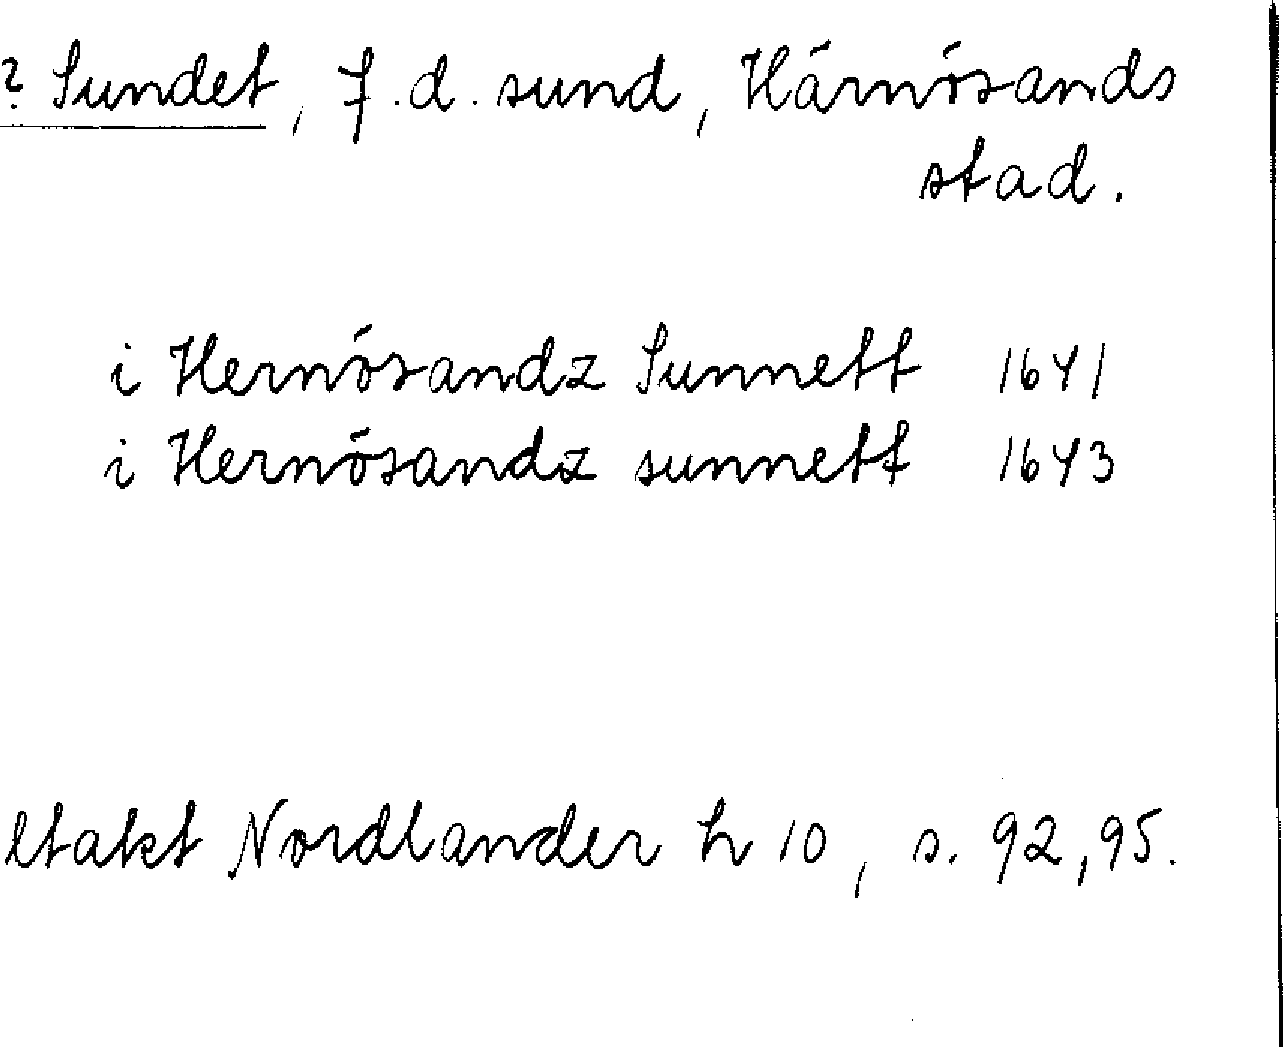 ? Sundet, f.d. sund, Härnösands
stad.
i Hernösandz Sunnett 1641
i Hernösandz sunnett 1643
Nordlander h 10, s. 92, 95.